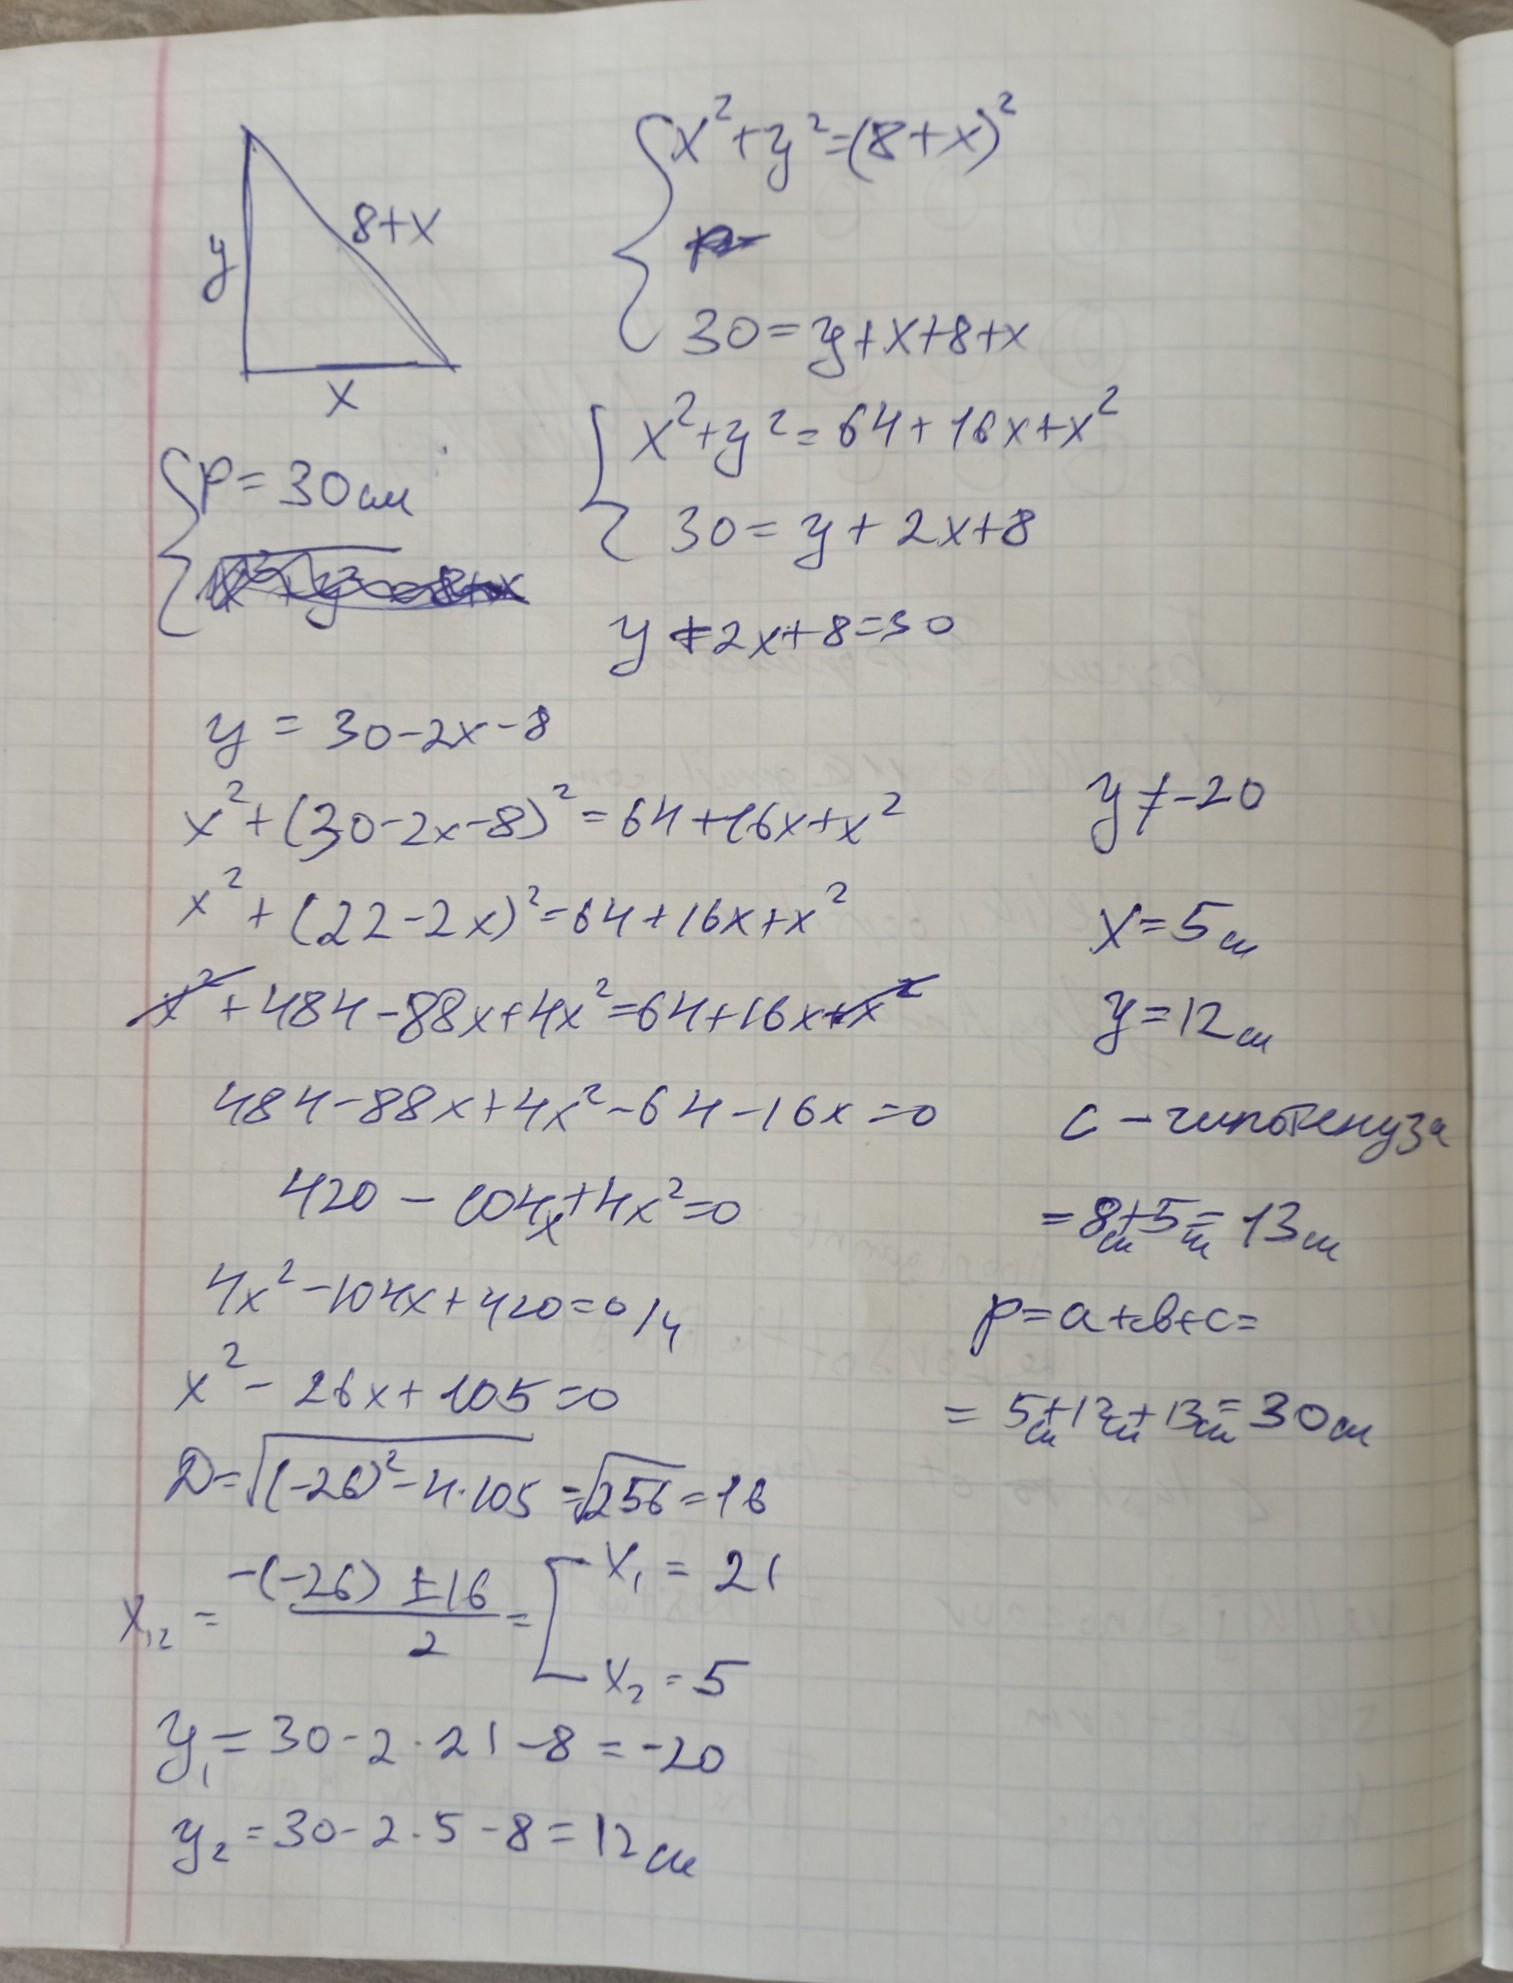 x²+y²=(8+x)²
y
8+x
x
30=y+x+8+x
x²+y²=64+16x+x²
p=30см
30=y+2x+8
y+2x+8=30
y=30-2x-8
x²+(30-2x-8)²=64+16x+x²
x²+(22-2x)²=64+16x+x²
x²+484-88x+4x²=64+16x+x²
484-88x+4x²-64-16x=0
420-104x+4x²=0
4x²-104x+420=0/4
x²-26x+105=0
D=√(-26)²-4·105=√256=16
x₁₂=(-(-26)±16)/2=[x₁=21
x₂=5
y₁=30-2·21-8=-20
y₂=30-2·5-8=12см
y≠-20
x=5см
y=12см
c-гипотенуза
=8см+5см=13см
p=a+b+c=
=5см+12см+13см=30см